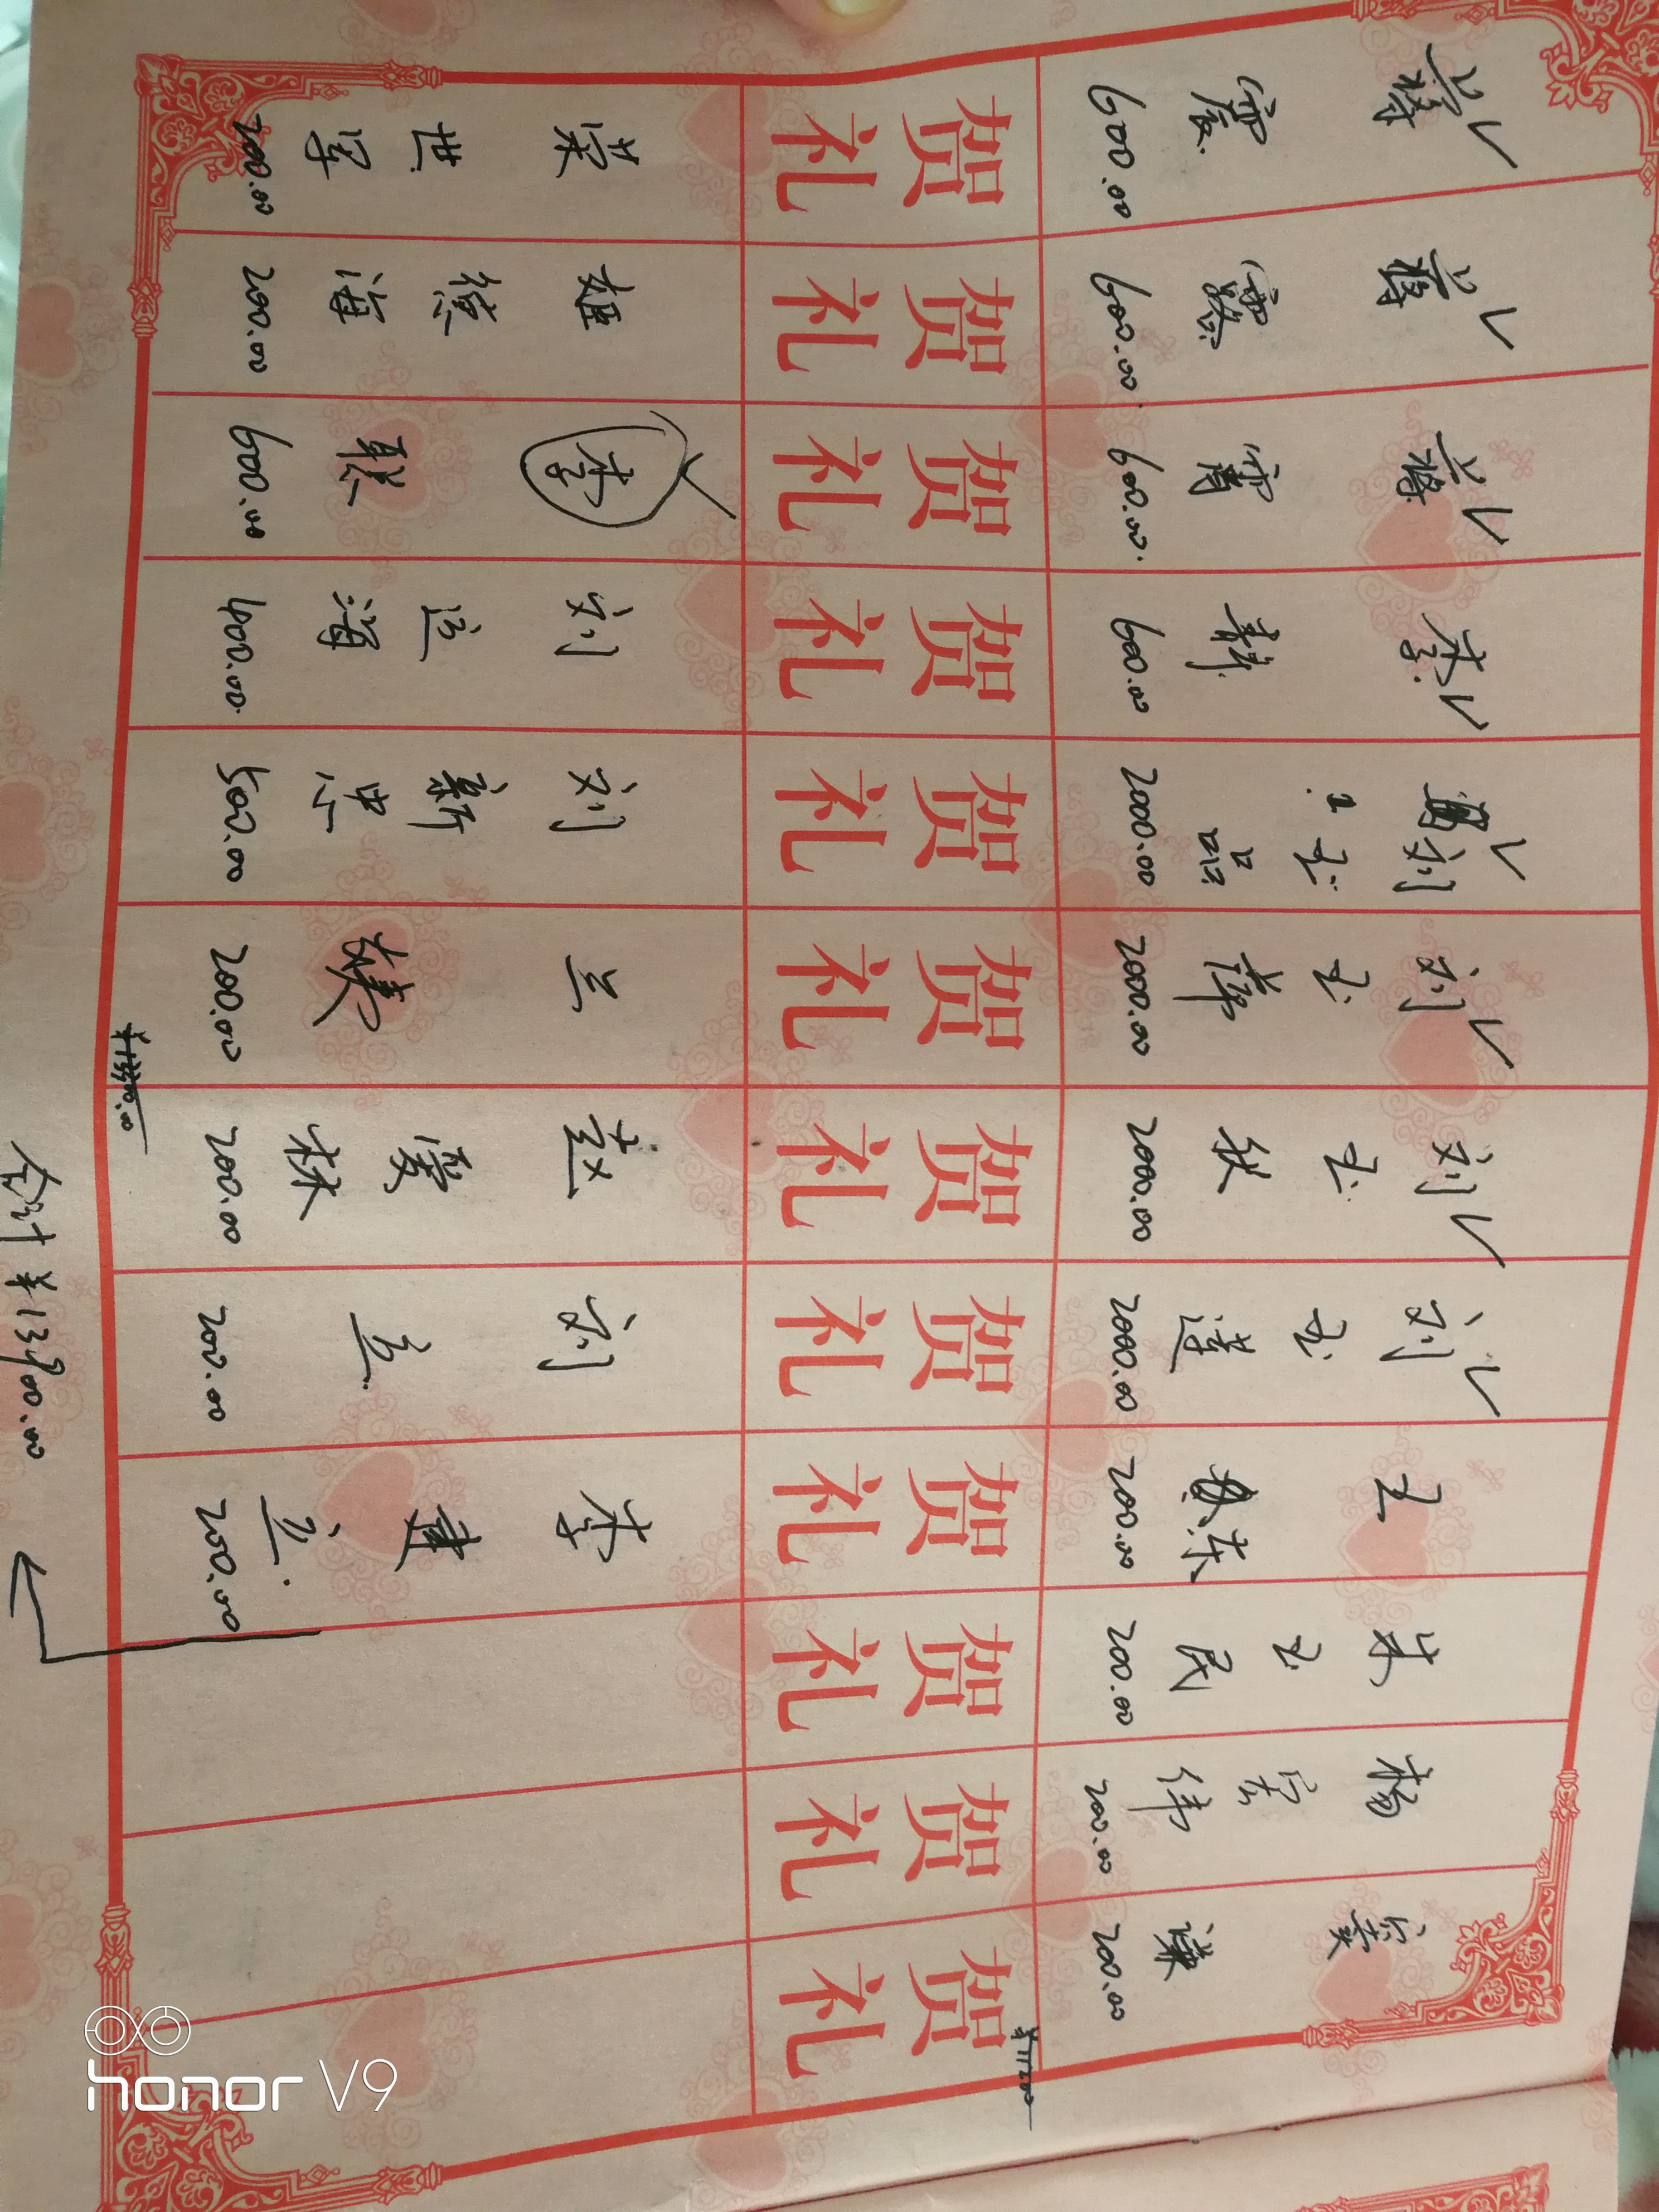 蒋震 600.00
蒋露 600.00
蒋霄 600.00
李静 600.00
刘玉品 2000.00
刘玉萍 2000.00
刘玉秋 2000.00
刘玉莲 2000.00
王东 200.00
朱玉民 200.00
杨宏伟 200.00
窦谦 200.00
¥11200
贺礼 贺礼 贺礼 贺礼 贺礼 贺礼 贺礼 贺礼 贺礼 贺礼 贺礼 贺礼
荣世军 200.00
姬德海 200.00
李聪 600.00
刘运海 400.00
刘新忠 500.00
兰姨 200.00
赵爱林 200.00
刘立 200.00
李建立 200.00
¥13300.00
合计 ¥13900.00
honor V9